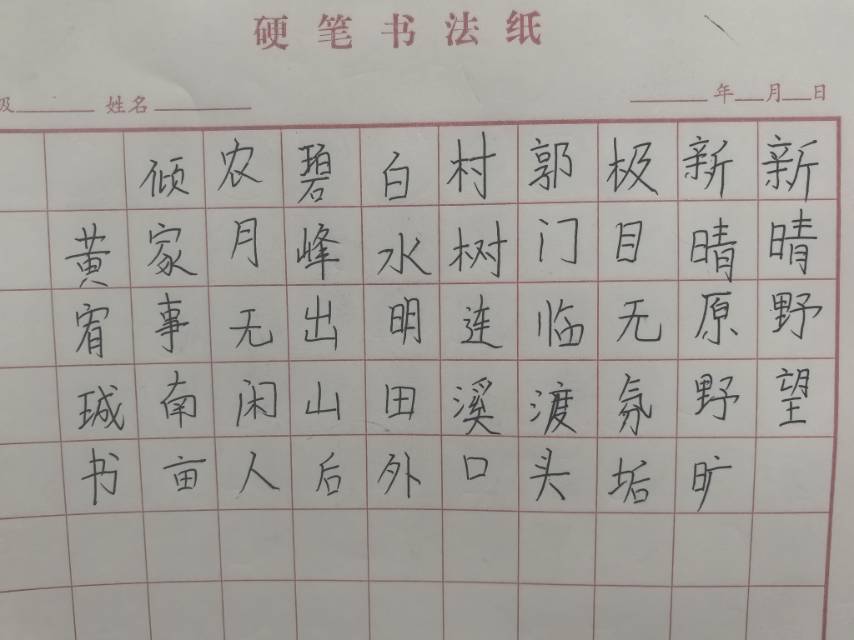 硬笔书法纸
级 姓名 年 月 日
新晴野望
新晴原野旷
极目无氛垢
郭门临渡头
村树连溪口
白水明田外
碧峰出山后
农月无闲人
倾家事南亩
黄宥珹书